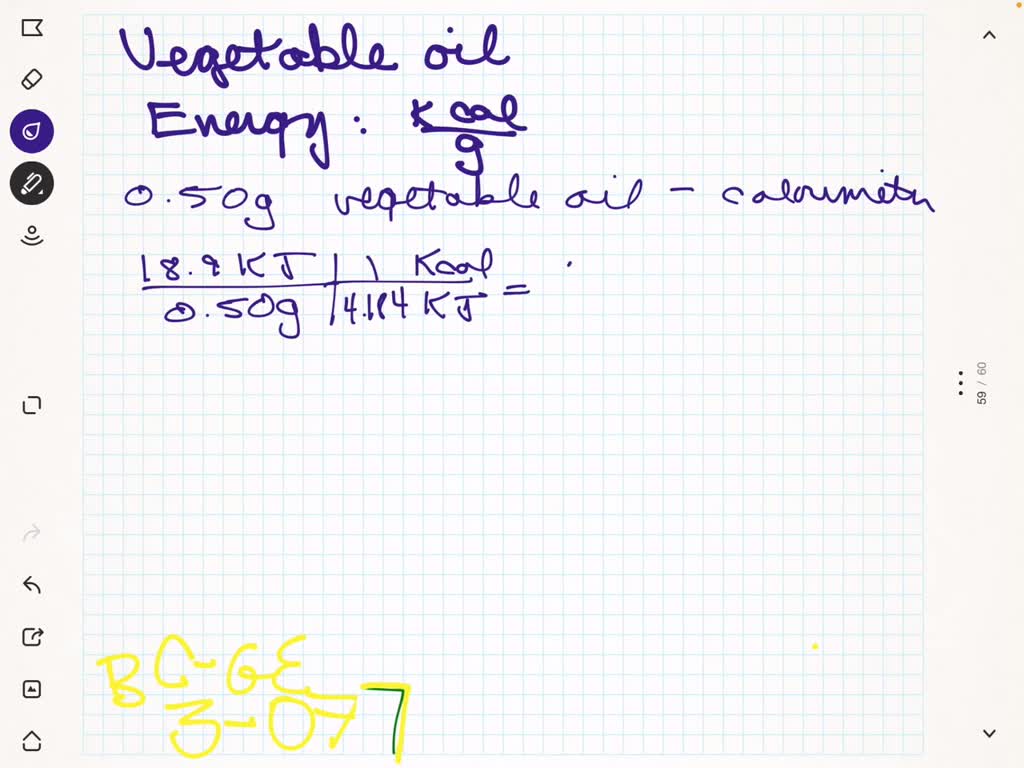 Vegetable oil
Energy: Kcal
g
0.50g vegetable oil - calorimeter
18.9 KJ | 1 Kcal
0.50g | 4.184 KJ =
BC-GE
3-077
59 / 60